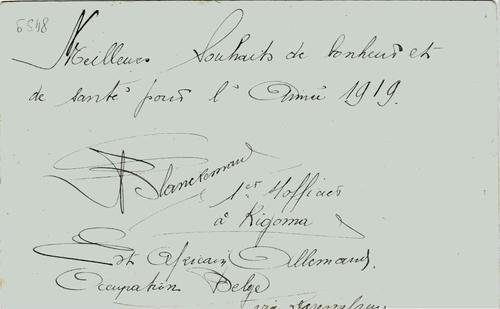 5548
Meilleurs Souhaits de bonheur et
de santé pour l' Année 1919.
1er S/officier
à Kigoma
Est Africain Allemand.
Occupation Belge
via